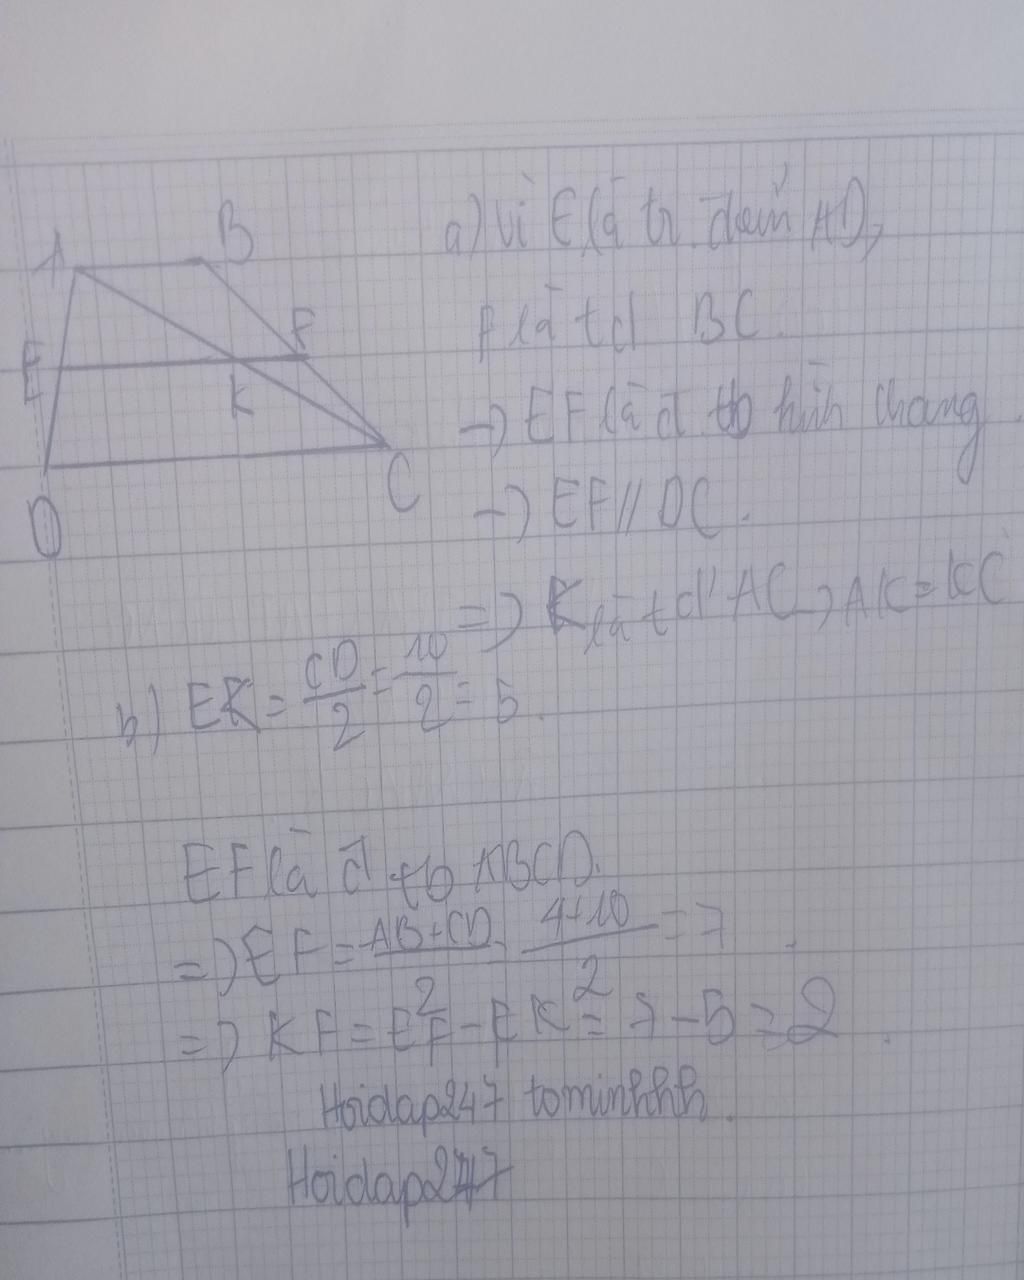 A
B
E
F
K
D
C
a) Vì E là tr. điểm AD,
F là tđ BC.
→ EF là đ tb hình thang
→ EF // DC.
=> K là tđ AC → AK = KC
b) EK = CD/2 = 10/2 = 5.
EF là đ tb ABCD.
=> EF = AB+CD/2 = 4+10/2 = 7.
=> KF = EF - EK = 7 - 5 = 2.
Hoidap247 tominhhh.
Hoidap247